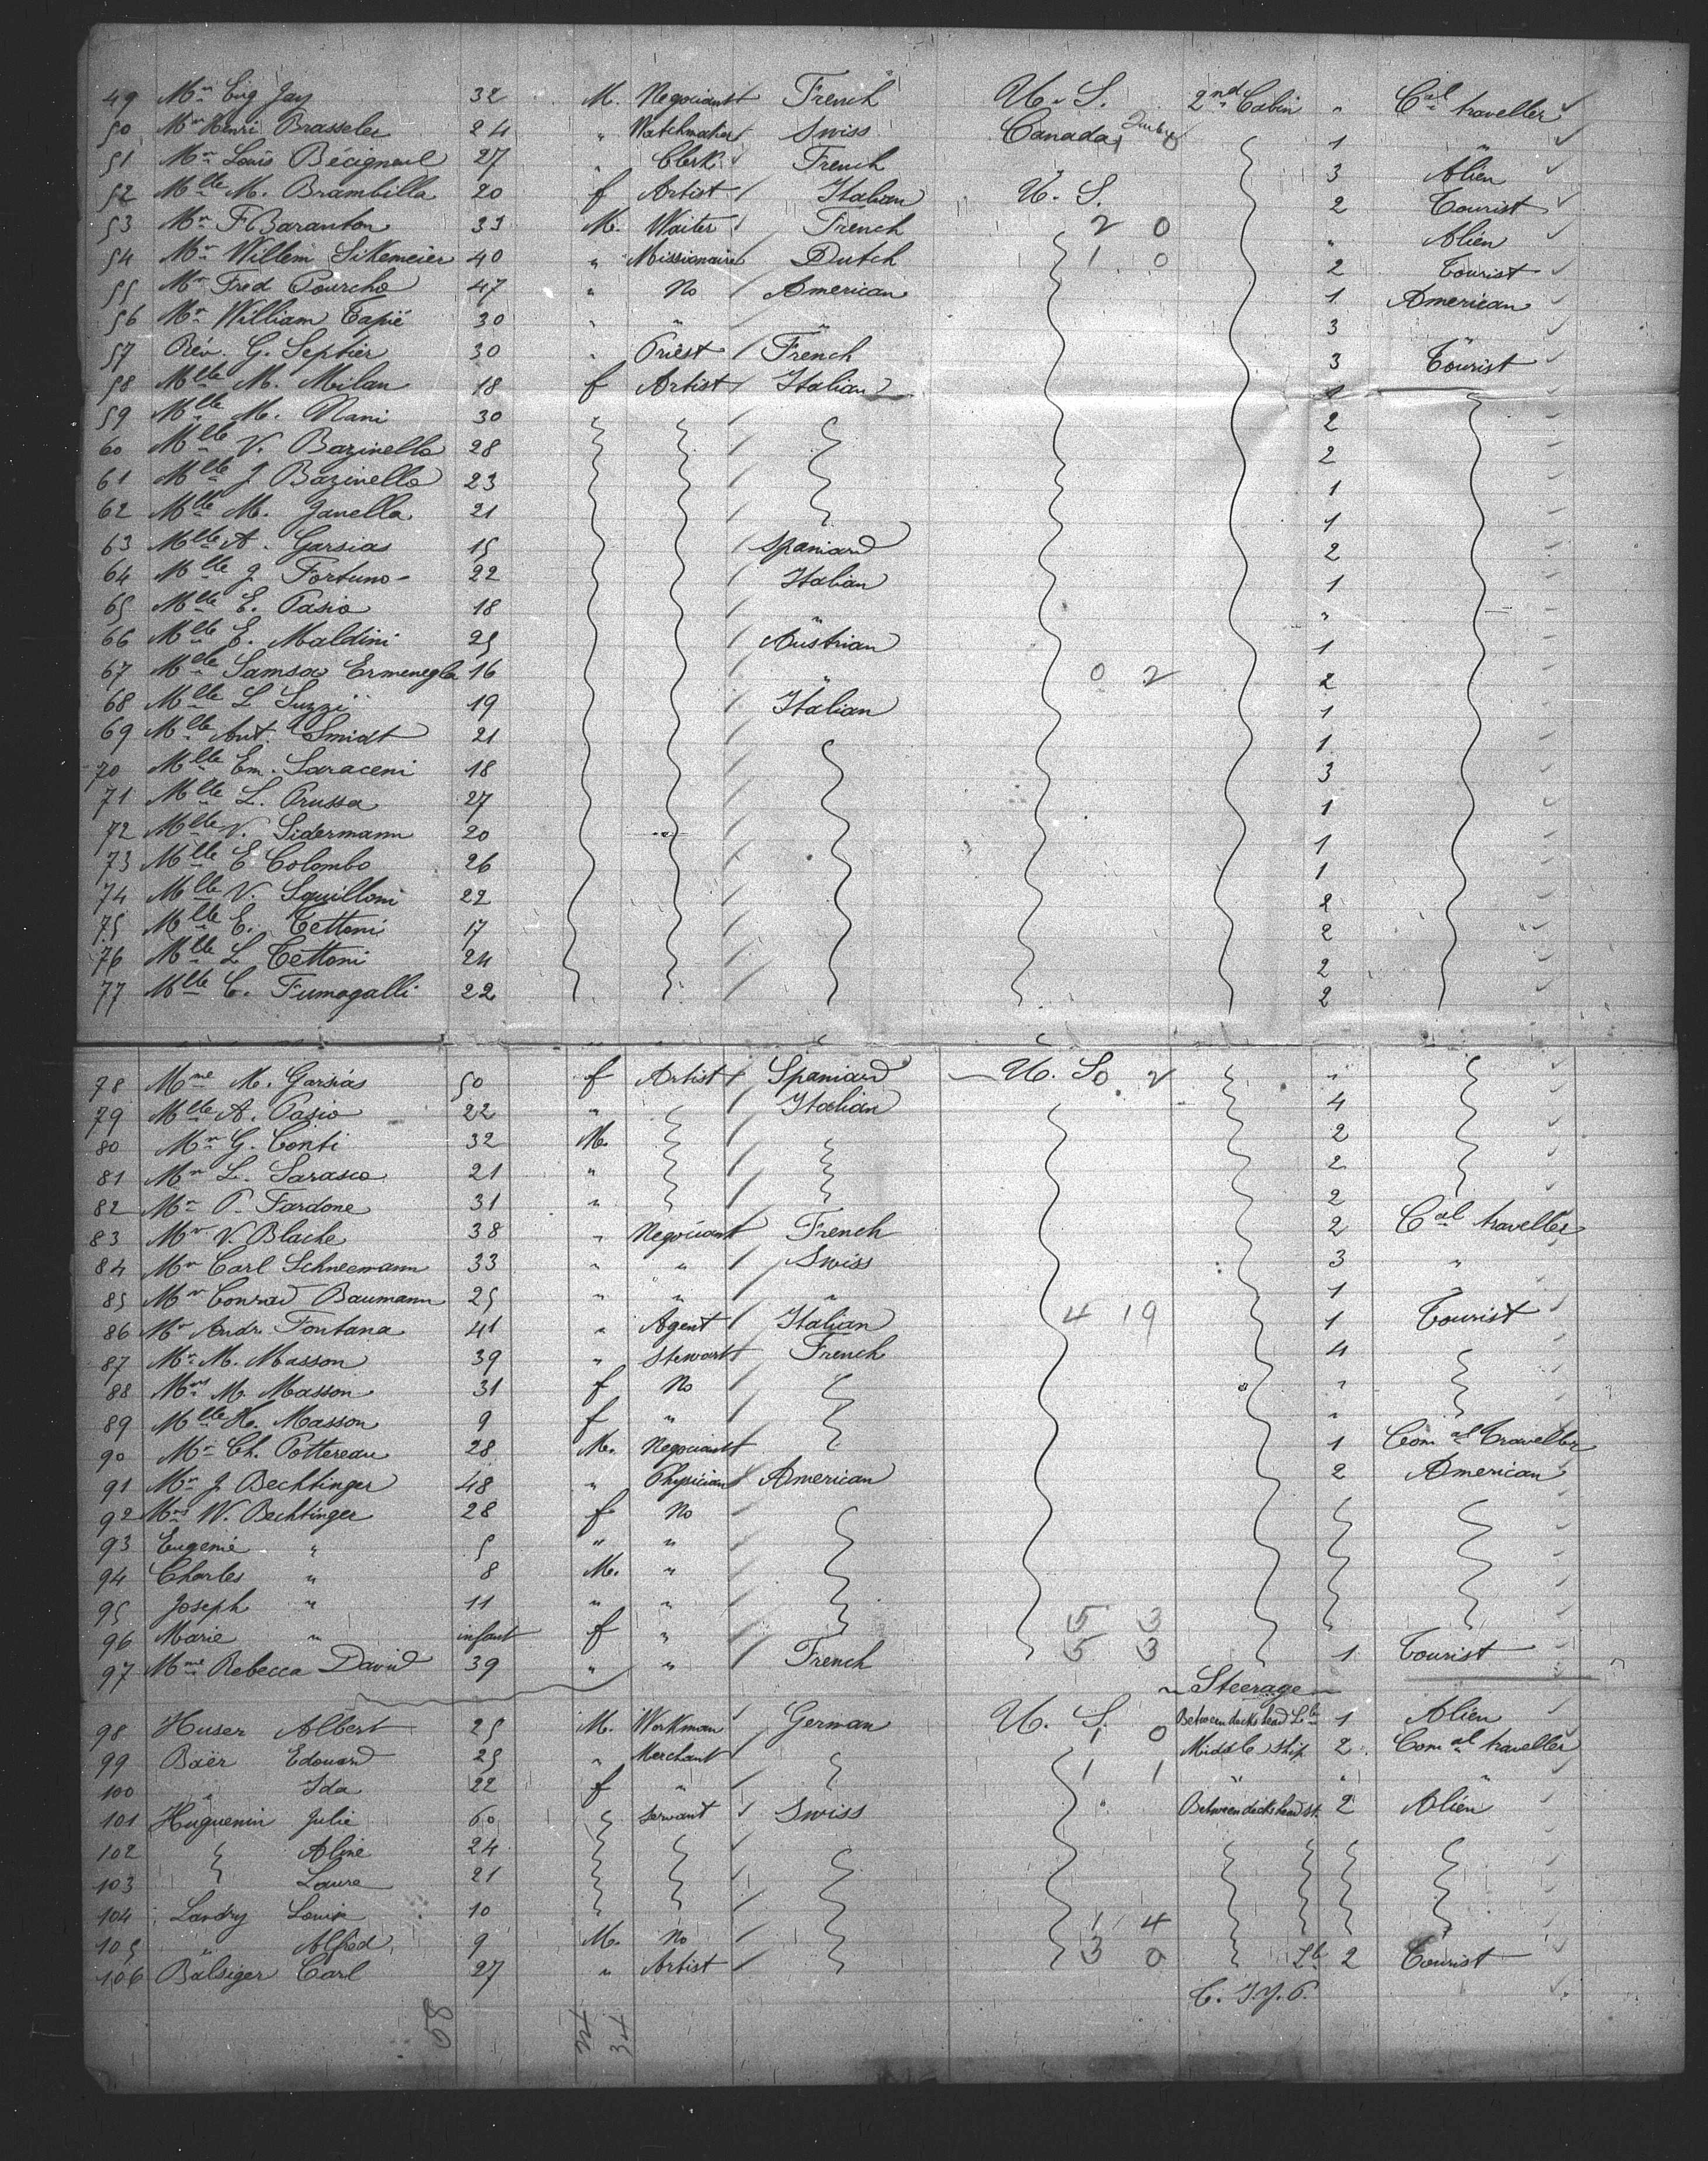 49 Mr Eug Jay 32 M. Negociant French U. S. 2nd Cabin " Cal traveller
50 Mr Henri Brasseler 24 " Watchmaker Swiss Canada 1 "
51 Mr Louis Bécigneul 27 " Clerk French " 3 Alien
52 Mlle M. Brambilla 20 f Artist Italian U. S. 2 Tourist
53 Mr F Baranton 33 M. Waiter French 2 0 " Alien
54 Mr Willem Sikemeier 40 " Missionaire Dutch 1 0 2 Tourist
55 Mr Fred Pourcho 47 " No American 1 American
56 Mr William Tapié 30 " " " 3 "
57 Rev. G. Septier 30 " Priest French 3 Tourist
58 Mlle M. Milan 18 f Artist Italian 1
59 Mlle M. Nani 30 2
60 Mlle V. Bazinello 28 2
61 Mlle J Bazinello 23 1
62 Mlle M. Janella 21 1
63 Mlle A. Garsias 15 Spaniard 2
64 Mlle J. Fortuno 22 Italian 1
65 Mlle E. Pasio 18 " "
66 Mlle E. Maldini 25 Austrian 1
67 Mlle Samsa Ermenegla 16 " 0 2 2
68 Mlle L Luzzi 19 Italian 1
69 Mlle Ant. Smidt 21 1
70 Mlle Em. Saraceni 18 3
71 Mlle L. Prussa 27 1
72 Mlle V. Sidermann 20 1
73 Mlle E Colombo 26 1
74 Mlle V. Squilloni 22 2
75 Mlle E. Tettoni 17 2
76 Mlle L Tettoni 24 2
77 Mlle C. Fumagalli 22 2
78 Mme M. Garsias 50 f Artist Spaniard U. S. 0 2 "
79 Mlle A. Pasio 22 " Italian 4
80 Mr G. Conti 32 M. 2
81 Mr L. Sarasco 21 " 2
82 Mr P. Fardone 31 " 2
83 Mr V. Blache 38 " Negociant French 2 Cal traveller
84 Mr Carl Schneemann 33 " " Swiss 3 "
85 Mr Conrad Baumann 25 " " " 1 "
86 Mr Andr. Fontana 41 " Agent Italian 4 19 1 Tourist
87 Mr M. Masson 39 " Stewart French 4
88 Mrs M. Masson 31 f No "
89 Mlle H. Masson 9 f " "
90 Mr Ch. Pottereau 28 M. Negociant 1 Comal Traveller
91 Mr J. Bechtinger 48 " Physician American 2 American
92 Mrs W. Bechtinger 28 f No
93 Eugenie " 5 " "
94 Charles " 8 M. "
95 Joseph " 11 " "
96 Marie " infant f " 5 3
97 Mme Rebecca David 39 " " French 5 3 1 Tourist
Steerage
98 Huser Albert 25 M. Workman German U. S. 1 0 Between decks head 1 Alien
99 Baër Edouard 25 " Merchant Middle ship 2 Comal traveller
100 " Ida 22 f " 1 1 " " "
101 Huguenin Julie 60 Servant Swiss " Between decks head 2 Alien
102 Aline 24
103 Laure 21
104 Landry Louis 10 1 4
105 " Alfred 9 M. No 3 0
106 Balsiger Carl 27 " Artist 2 Tourist